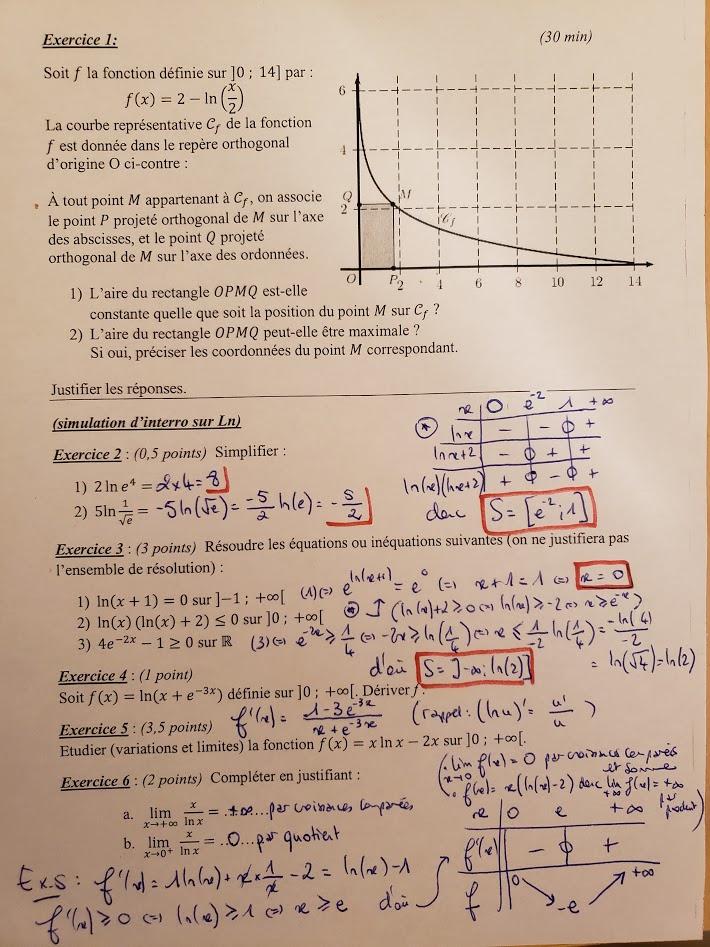 Exercice 1: (30 min)
Soit f la fonction définie sur ]0 ; 14] par :
f(x) = 2 − ln(x/2)
La courbe représentative C_f de la fonction
f est donnée dans le repère orthogonal
d'origine O ci-contre :
À tout point M appartenant à C_f, on associe
le point P projeté orthogonal de M sur l'axe
des abscisses, et le point Q projeté
orthogonal de M sur l'axe des ordonnées.
6
4
Q M
2
C_f
O P 2 4 6 8 10 12 14
1) L'aire du rectangle OPMQ est-elle
constante quelle que soit la position du point M sur C_f ?
2) L'aire du rectangle OPMQ peut-elle être maximale ?
Si oui, préciser les coordonnées du point M correspondant.
Justifier les réponses.
(simulation d'interro sur Ln)
x 0 e^-2 1 +∞
* ln x − − 0 +
ln x + 2 − 0 + +
ln(x)(ln x + 2) + 0 − 0 +
donc S = [e^-2 ; 1]
Exercice 2 : (0,5 points) Simplifier :
1) 2 ln e^4 = 2 × 4 = 8
2) 5 ln 1/√e = −5 ln(√e) = −5/2 ln(e) = −5/2
Exercice 3 : (3 points) Résoudre les équations ou inéquations suivantes (on ne justifiera pas
l'ensemble de résolution) :
1) ln(x + 1) = 0 sur ]−1 ; +∞[ (1) ⇔ e^ln(x+1) = e^0 ⇔ x + 1 = 1 ⇔ x = 0
2) ln(x) (ln(x) + 2) ≤ 0 sur ]0 ; +∞[ * (ln(x) + 2 ≥ 0 ⇔ ln(x) ≥ −2 ⇔ x ≥ e^-2)
3) 4e^−2x − 1 ≥ 0 sur ℝ (3) ⇔ e^−2x ≥ 1/4 ⇔ −2x ≥ ln(1/4) ⇔ x ≤ 1/−2 ln(1/4) = −ln(4)/−2
d'où S = ]−∞ ; ln(2)] = ln(√4) = ln(2)
Exercice 4 : (1 point)
Soit f(x) = ln(x + e^−3x) définie sur ]0 ; +∞[. Dériver f.
f'(x) = 1 − 3e^−3x / x + e^−3x (rappel : (ln u)' = u'/u)
Exercice 5 : (3,5 points)
Etudier (variations et limites) la fonction f(x) = x ln x − 2x sur ]0 ; +∞[.
(. lim x→0 f(x) = 0 par croissances comparées
et somme
. f(x) = x(ln(x) − 2) donc lim +∞ f(x) = +∞
par produit)
Exercice 6 : (2 points) Compléter en justifiant :
a. lim x→+∞ x/ln x = ..+∞... par croissances comparées
b. lim x→0+ x/ln x = ..0... par quotient
x 0 e +∞
f'(x) − 0 +
f 0 −e +∞
Ex.5 : f'(x) = 1 ln(x) + x × 1/x − 2 = ln(x) − 1
f'(x) ≥ 0 ⇔ ln(x) ≥ 1 ⇔ x ≥ e d'où